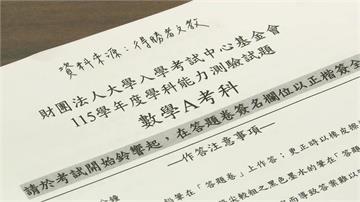 資料來源：得勝者文教
財團法人大學入學考試中心基金會
115學年度學科能力測驗試題
數學A考科
請於考試開始鈴響起，在答題卷簽名欄位以正楷簽全
—作答注意事項—
分鐘
筆在「答題卷」上作答；更正時以橡皮擦
尖較粗之黑色墨水的筆在「答題
而導致答案難以